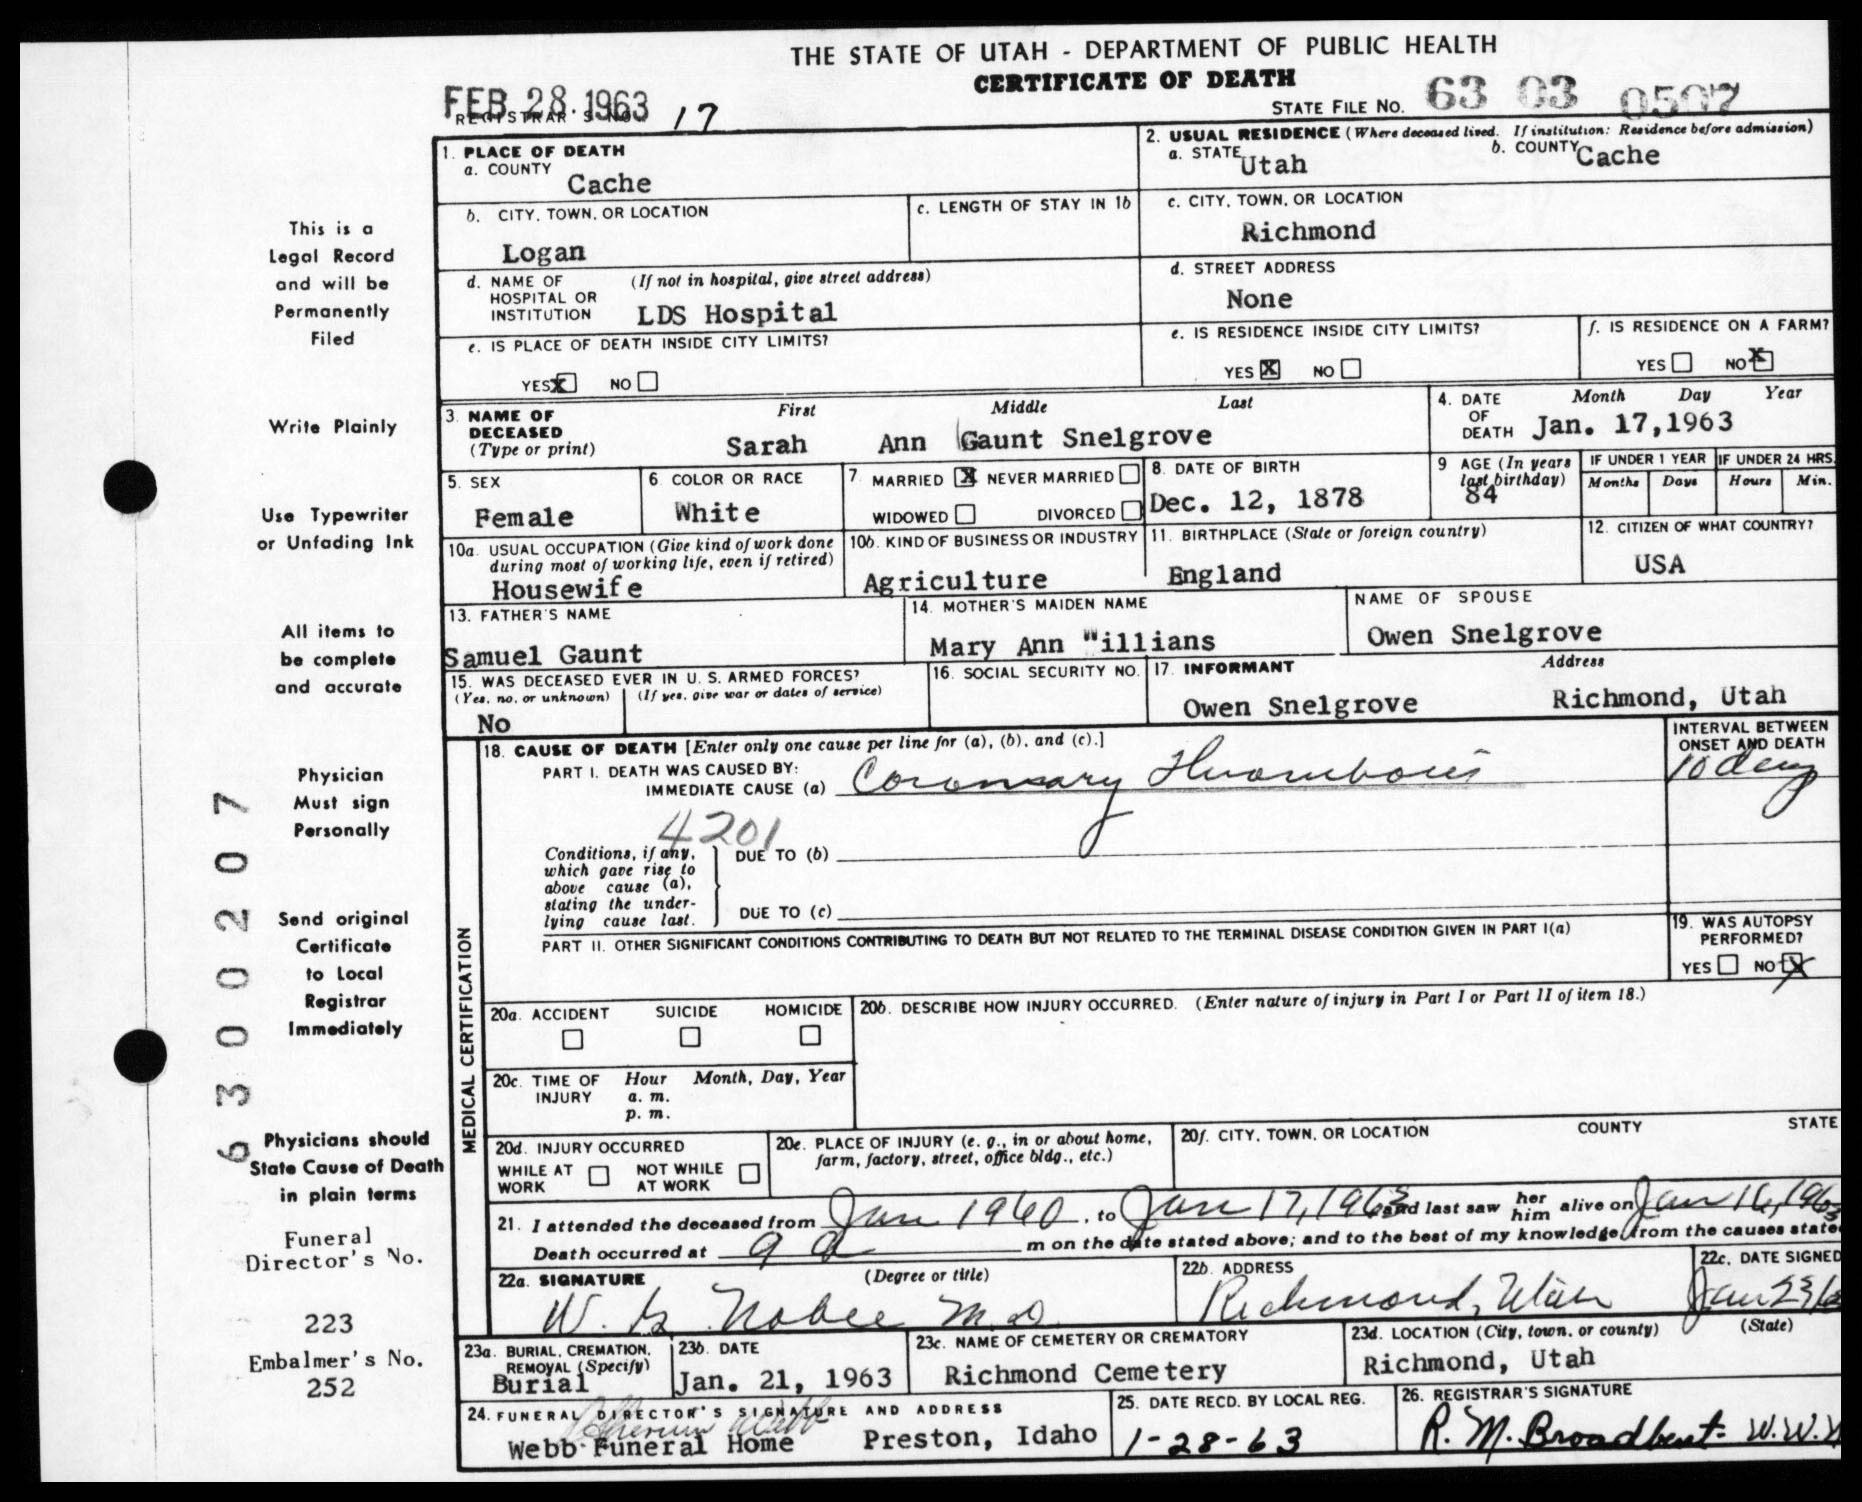 THE STATE OF UTAH - DEPARTMENT OF PUBLIC HEALTH
CERTIFICATE OF DEATH
FEB 28 1963
REGISTRAR'S NO. 17
STATE FILE NO. 63 03 0507
1. PLACE OF DEATH
a. COUNTY
Cache
2. USUAL RESIDENCE (Where deceased lived. If institution: Residence before admission)
a. STATE Utah
b. COUNTY Cache
b. CITY, TOWN, OR LOCATION
Logan
c. LENGTH OF STAY IN 1b
c. CITY, TOWN, OR LOCATION
Richmond
d. NAME OF HOSPITAL OR INSTITUTION
(If not in hospital, give street address)
LDS Hospital
d. STREET ADDRESS
None
e. IS PLACE OF DEATH INSIDE CITY LIMITS?
YES X NO
e. IS RESIDENCE INSIDE CITY LIMITS?
YES X NO
f. IS RESIDENCE ON A FARM?
YES NO X
3. NAME OF DECEASED
(Type or print)
First Middle Last
Sarah Ann Gaunt Snelgrove
4. DATE OF DEATH
Month Day Year
Jan. 17,1963
5. SEX
Female
6. COLOR OR RACE
White
7. MARRIED X NEVER MARRIED
WIDOWED DIVORCED
8. DATE OF BIRTH
Dec. 12, 1878
9 AGE (In years last birthday)
84
IF UNDER 1 YEAR
Months Days
IF UNDER 24 HRS.
Hours Min.
10a. USUAL OCCUPATION (Give kind of work done during most of working life, even if retired)
Housewife
10b. KIND OF BUSINESS OR INDUSTRY
Agriculture
11. BIRTHPLACE (State or foreign country)
England
12. CITIZEN OF WHAT COUNTRY?
USA
13. FATHER'S NAME
Samuel Gaunt
14. MOTHER'S MAIDEN NAME
Mary Ann Willians
NAME OF SPOUSE
Owen Snelgrove
15. WAS DECEASED EVER IN U. S. ARMED FORCES?
(Yes, no, or unknown) (If yes, give war or dates of service)
No
16. SOCIAL SECURITY NO.
17. INFORMANT Address
Owen Snelgrove Richmond, Utah
MEDICAL CERTIFICATION
18. CAUSE OF DEATH [Enter only one cause per line for (a), (b), and (c).]
PART I. DEATH WAS CAUSED BY:
IMMEDIATE CAUSE (a) Coronary Thrombosis
INTERVAL BETWEEN ONSET AND DEATH
10 day
4201
Conditions, if any, which gave rise to above cause (a), stating the underlying cause last.
DUE TO (b)
DUE TO (c)
PART II. OTHER SIGNIFICANT CONDITIONS CONTRIBUTING TO DEATH BUT NOT RELATED TO THE TERMINAL DISEASE CONDITION GIVEN IN PART I(a)
19. WAS AUTOPSY PERFORMED?
YES NO X
20a. ACCIDENT SUICIDE HOMICIDE
20b. DESCRIBE HOW INJURY OCCURRED. (Enter nature of injury in Part I or Part II of item 18.)
20c. TIME OF INJURY
Hour Month, Day, Year
a. m.
p. m.
20d. INJURY OCCURRED
WHILE AT WORK NOT WHILE AT WORK
20e. PLACE OF INJURY (e. g., in or about home, farm, factory, street, office bldg., etc.)
20f. CITY, TOWN, OR LOCATION COUNTY STATE
21. I attended the deceased from Jan 1960, to Jan 17, 1963 and last saw her him alive on Jan 16, 1963
Death occurred at 9 a m on the date stated above; and to the best of my knowledge, from the causes state
22a. SIGNATURE (Degree or title)
W. G. Noble M.D.
22b. ADDRESS
Richmond, Utah
22c. DATE SIGNED
Jan 23/6
23a. BURIAL, CREMATION, REMOVAL (Specify)
Burial
23b. DATE
Jan. 21, 1963
23c. NAME OF CEMETERY OR CREMATORY
Richmond Cemetery
23d. LOCATION (City, town, or county) (State)
Richmond, Utah
24. FUNERAL DIRECTOR'S SIGNATURE AND ADDRESS
Webb
Webb Funeral Home Preston, Idaho
25. DATE RECD. BY LOCAL REG.
1-28-63
26. REGISTRAR'S SIGNATURE
R. M. Broadbent - W.W.
This is a
Legal Record
and will be
Permanently
Filed
Write Plainly
Use Typewriter
or Unfading Ink
All items to
be complete
and accurate
Physician
Must sign
Personally
Send original
Certificate
to Local
Registrar
Immediately
Physicians should
State Cause of Death
in plain terms
Funeral
Director's No.
223
Embalmer's No.
252
6300207